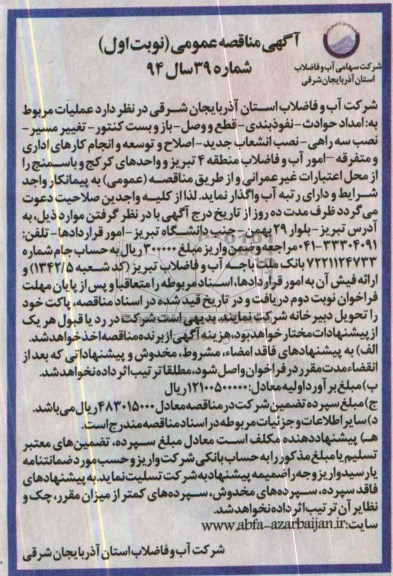 آگهی مناقصه عمومی (نوبت اول)
شماره ۳۹ سال ۹۴
شرکت سهامی آب و فاضلاب
استان آذربایجان شرقی
شرکت آب و فاضلاب استان آذربایجان شرقی در نظر دارد عملیات مربوط
به: امداد حوادث - نفوذبندی - قطع و وصل - باز و بست کنتور - تغییر مسیر -
نصب سه راهی - نصب انشعاب جدید - اصلاح و توسعه و انجام کارهای اداری
و متفرقه - امور آب و فاضلاب منطقه ۴ تبریز و واحدهای کرکج و باسمنج را
از محل اعتبارات غیر عمرانی و از طریق مناقصه (عمومی) به پیمانکار واجد
شرایط و دارای رتبه آب واگذار نماید. لذا از کلیه واجدین صلاحیت دعوت
می گردد ظرف مدت ده روز از تاریخ درج آگهی با در نظر گرفتن موارد ذیل، به
آدرس تبریز - بلوار ۲۹ بهمن - جنب دانشگاه تبریز - امور قراردادها - تلفن:
۰۴۱-۳۳۳۰۴۰۹۱ مراجعه و ضمن واریز مبلغ ۳۰۰۰۰۰ ریال به حساب جام شماره
۷۲۲۱۱۲۴۷۳۳ بانک ملت باجه آب و فاضلاب تبریز (کد شعبه ۱۳۴۲/۵) و
ارائه فیش آن به امور قراردادها، اسناد مربوطه را متعاقبا و پس از پایان مهلت
فراخوان نوبت دوم دریافت و در تاریخ قید شده در اسناد مناقصه، پاکت خود
را تحویل دبیرخانه شرکت نمایند. بدیهی است شرکت در رد یا قبول هر یک
از پیشنهادات مختار خواهد بود، هزینه آگهی از برنده مناقصه اخذ خواهد شد.
الف) به پیشنهادهای فاقد امضاء، مشروط، مخدوش و پیشنهاداتی که بعد از
انقضاء مدت مقرر در فراخوان واصل شود، مطلقا ترتیب اثر داده نخواهد شد.
ب) مبلغ برآورد اولیه معادل: ۱۲۱۰۰۵۰۰۰۰۰ ریال
ج) مبلغ سپرده تضمین شرکت در مناقصه معادل ۴۸۳۰۱۵۰۰۰ ریال می باشد.
د) سایر اطلاعات و جزئیات مربوطه در اسناد مناقصه مندرج است.
هـ) پیشنهاد دهنده مکلف است معادل مبلغ سپرده، تضمین های معتبر
تسلیم یا مبلغ مذکور را به حساب بانکی شرکت واریز و حسب مورد ضمانتنامه
یا رسید واریز وجه را ضمیمه پیشنهاد به شرکت تسلیت نماید. به پیشنهادهای
فاقد سپرده، سپرده های مخدوش، سپرده های کمتر از میزان مقرر، چک و
نظایر آن ترتیب اثر داده نخواهد شد.
سایت: www.abfa-azarbaijan.ir
شرکت آب و فاضلاب استان آذربایجان شرقی